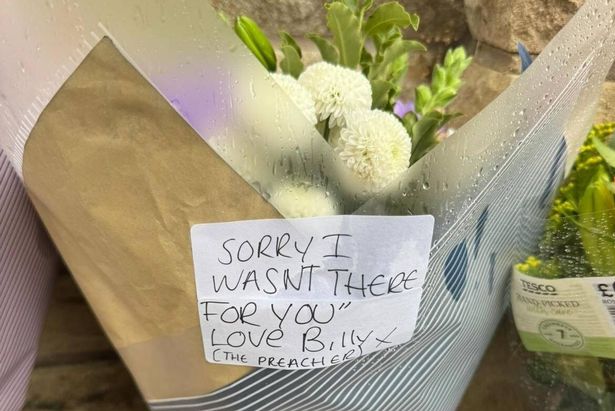 SORRY I
WASNT THERE
FOR YOU"
LOVE BillY x
(THE PREACHER)
TESCO
HAND PICKED
with care
7
£